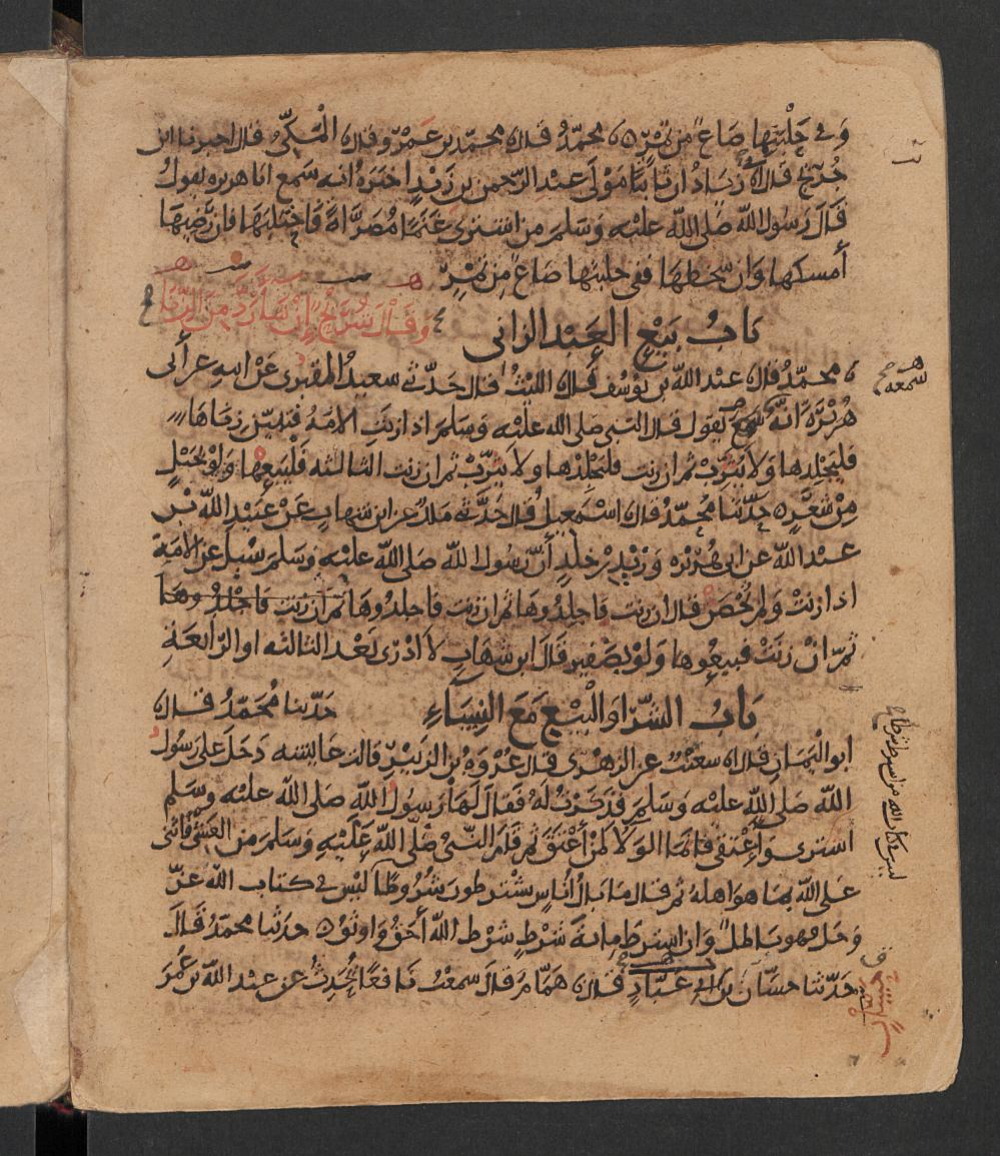 وفي حلبتها صاع من تمر ه نا محمد قال نا محمد بن عمرو قال نا المكي قال اخبرنا ابن
جريج قال نا زياد ان ثابتا مولى عبد الرحمن بن زيد اخبره انه سمع ابا هريره يقول
قال رسول الله صلى الله عليه وسلم من اشترى غنما مصراة فاحتلبها فان رضيها
أمسكها وان سخطها ففي حلبتها صاع من تمر
باب بيع العبد الزاني وقال شريح ان شا رد من الزنا
نا محمد قال نا عبد الله بن يوسف قال نا الليث قال حدثني سعيد المقبري عن ابيه عن أبي
هريرة انه سمعه يقول قال النبي صلى الله عليه وسلم اذا زنت الامة فتبين زناها
فليجلدها ولا يثرب ثم ان زنت فليجلدها ولا يثرب ثم ان زنت الثالثه فليبعها ولو بحبل
من شعر ه حدثنا محمد قال نا اسمعيل قال حدثني ملك عن ابن شهاب عن عبيد الله بن
عبد الله عن ابي هريره وزيد بن خلد أن رسول الله صلى الله عليه وسلم سئل عن الامة
اذا زنت ولم تحصن قال ان زنت فاجلدوها ثم ان زنت فاجلدوها ثم ان زنت فاجلدوها
ثم ان زنت فبيعوها ولو بضفير قال ابن شهاب لا أدري بعد الثالثه او الرابعة
باب الشرا والبيع مع النساء حدثنا محمد قال نا
ابو اليمان قال نا شعيب عن الزهري قال عروة بن الزبير قالت عايشه دخل علي رسول
الله صلى الله عليه وسلم فذكرت له فقال لها رسول الله صلى الله عليه وسلم
اشتري واعتقي فانما الولا لمن أعتق ثم قام النبي صلى الله عليه وسلم من العشي فاثنى
على الله بما هو اهله ثم قال ما بال أناس يشترطون شروطا ليس في كتاب الله عز
وجل فهو باطل وان اشترط مائة شرط شرط الله أحق واوثق ه حدثنا محمد قال
حدثنا حسان بن ابي عباد قال نا همام قال سمعت نافعا يحدث عن عبد الله بن عمر
سمعه